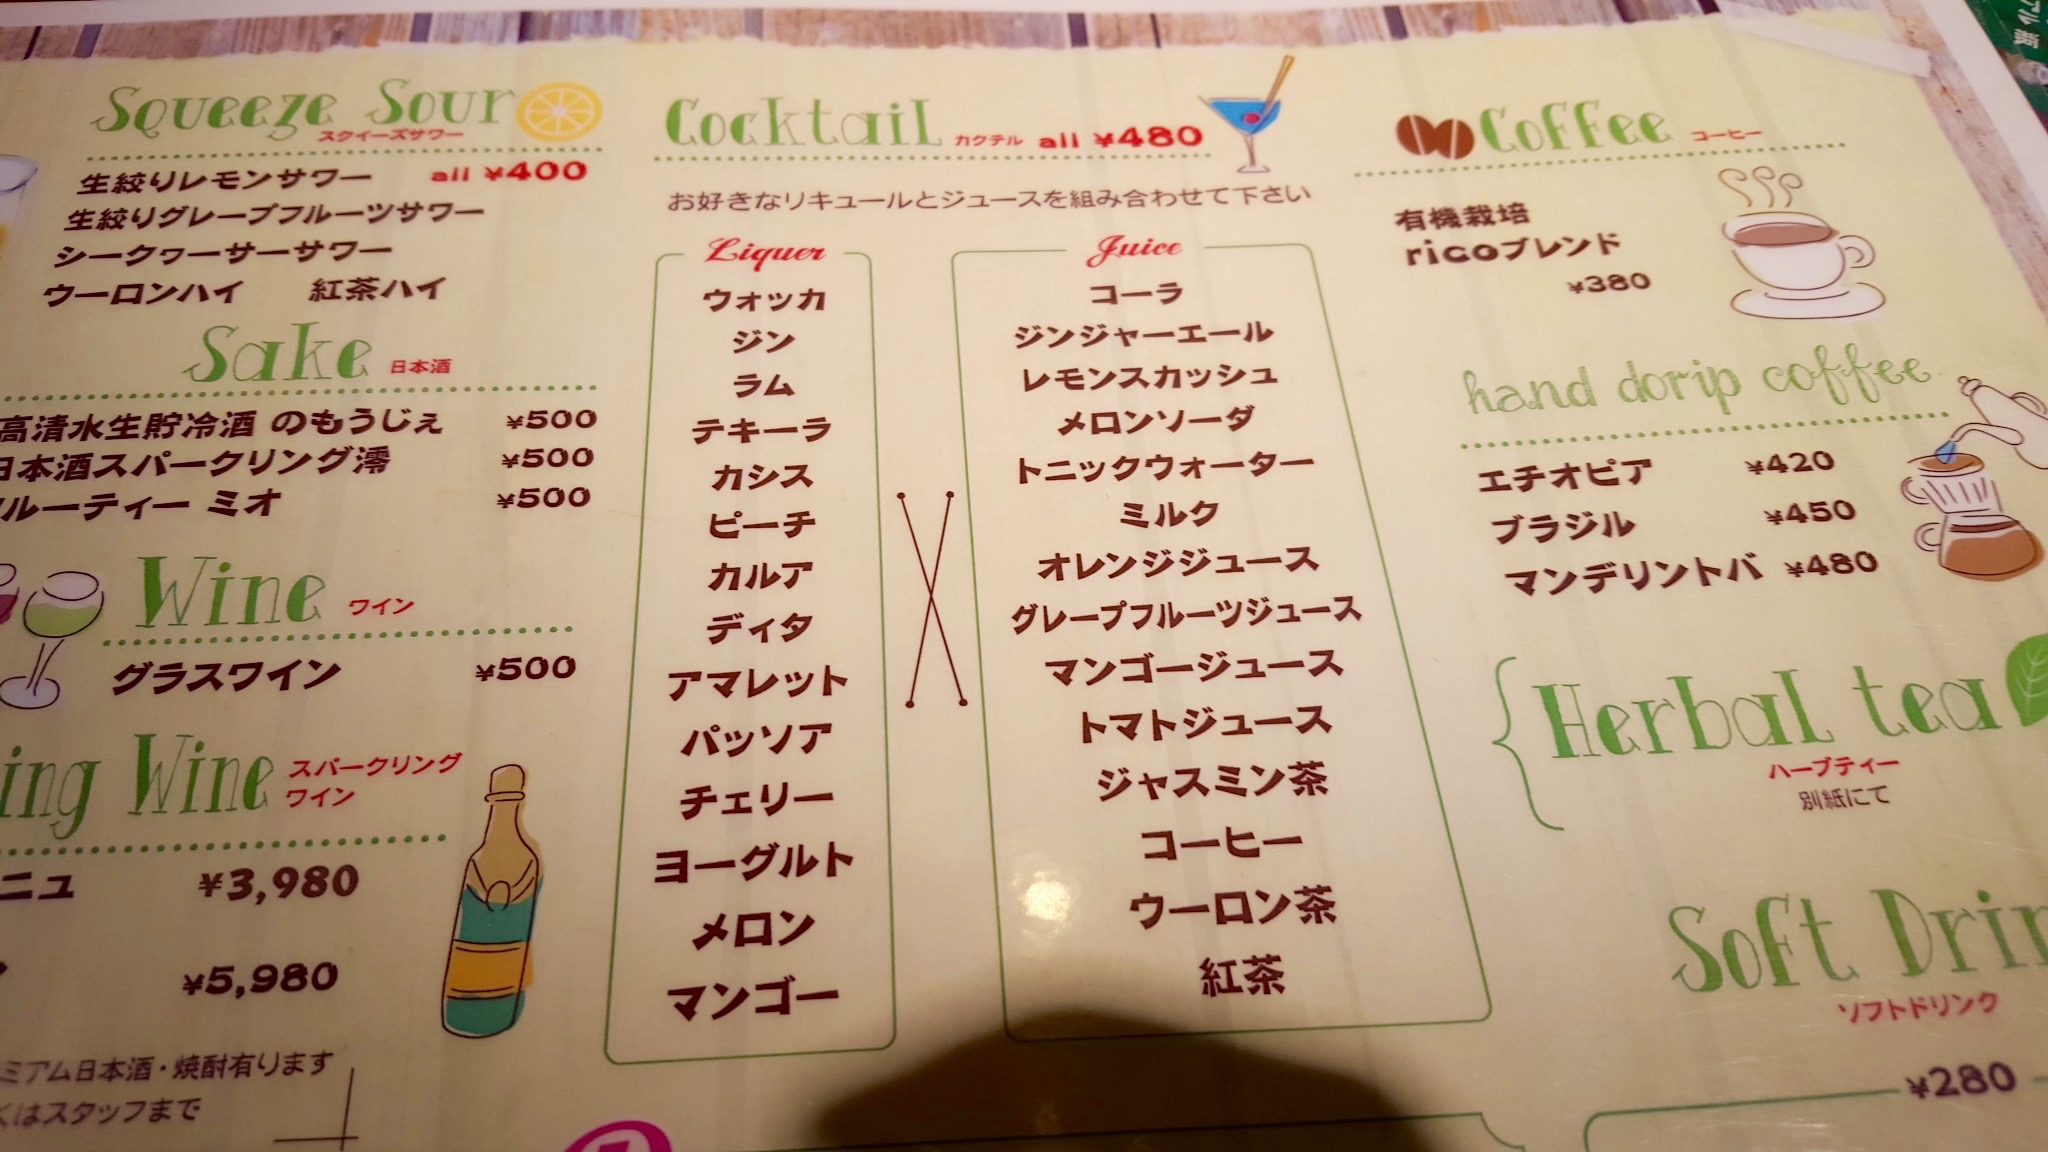 Squeeze Sour
スクイーズサワー
生絞りレモンサワー all ¥400
生絞りグレープフルーツサワー
シークヮーサーサワー
ウーロンハイ 紅茶ハイ
Sake 日本酒
高清水生貯冷酒 のもうじぇ ¥500
日本酒スパークリング澪 ¥500
ルーティー ミオ ¥500
Wine ワイン
グラスワイン ¥500
ing Wine スパークリング
ワイン
ニュ ¥3,980
¥5,980
ミアム日本酒・焼酎有ります
くはスタッフまで
Cocktail カクテル all ¥480
お好きなリキュールとジュースを組み合わせて下さい
Liquer
ウォッカ
ジン
ラム
テキーラ
カシス
ピーチ
カルア
ディタ
アマレット
パッソア
チェリー
ヨーグルト
メロン
マンゴー
Juice
コーラ
ジンジャーエール
レモンスカッシュ
メロンソーダ
トニックウォーター
ミルク
オレンジジュース
グレープフルーツジュース
マンゴージュース
トマトジュース
ジャスミン茶
コーヒー
ウーロン茶
紅茶
Coffee コーヒー
有機栽培
ricoブレンド
¥380
hand dorip coffee
エチオピア ¥420
ブラジル ¥450
マンデリントバ ¥480
Herbal tea
ハーブティー
別紙にて
Soft Drin
ソフトドリンク
¥280